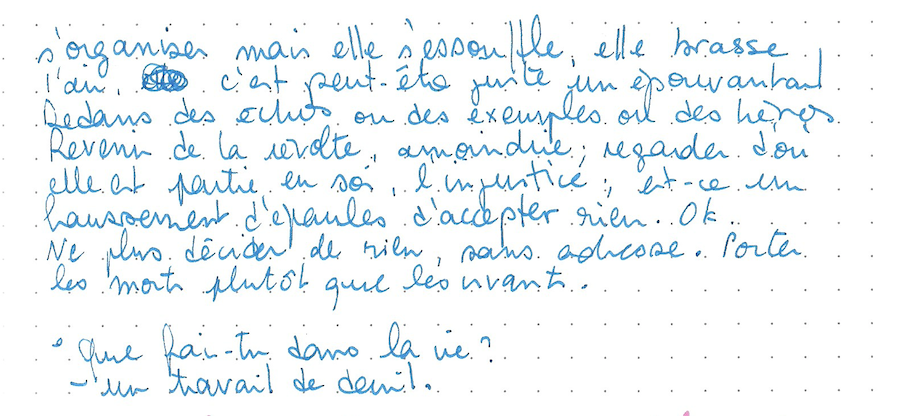 s'organiser mais elle s'essouffle, elle brasse
l'air, c'est peut-être juste un épouvantail
Dedans des échos ou des exemples ou des héros
Revenir de la révolte, amoindrie, regarder d'où
elle est partie en soi, l'injustice, est-ce un
haussement d'épaules d'accepter rien. Ok.
Ne plus décider de rien, sans adresse. Porter
les morts plutôt que les vivants.
• Que fais-tu dans la vie ?
- un travail de deuil.